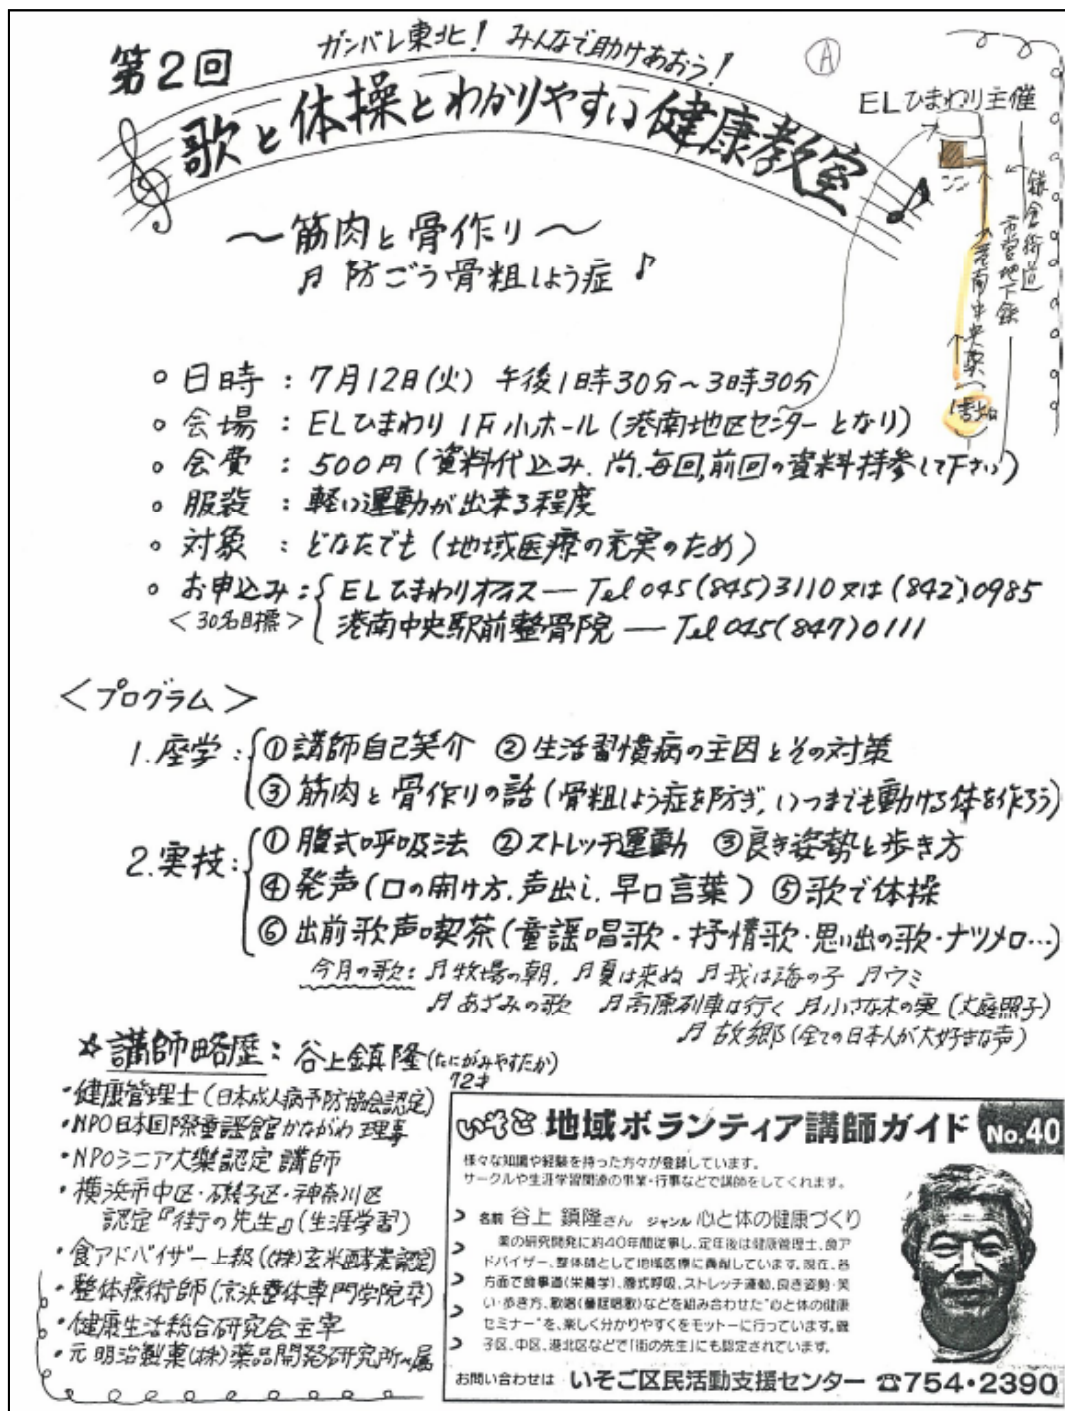 第2回
ガンバレ東北! みんなで助けあおう!
Ⓐ
ELひまわり主催
歌と体操とわかりやすい健康教室
鎌倉街道
市営地下鉄
港南中央駅
〜筋肉と骨作り〜
♬ 防ごう骨粗しょう症 ♪
○ 日時 : 7月12日(火) 午後1時30分~3時30分
○ 会場 : ELひまわり 1F小ホール(港南地区センターとなり)
○ 会費 : 500円(資料代込み. 尚,毎回,前回の資料持参して下さい)
○ 服装 : 軽い運動が出来る程度
○ 対象 : どなたでも(地域医療の充実のため)
○ お申込み : ELひまわりオフィス ― Tel 045(845)3110 又は(842)0985
<30名目標> 港南中央駅前整骨院 ― Tel 045(847)0111
<プログラム>
1.座学 : ①講師自己紹介 ②生活習慣病の主因とその対策
③筋肉と骨作りの話(骨粗しょう症を防ぎ,いつまでも動ける体を作ろう)
2.実技 : ①腹式呼吸法 ②ストレッチ運動 ③良き姿勢と歩き方
④発声(口の開け方.声出し.早口言葉) ⑤歌で体操
⑥出前歌声喫茶(童謡唱歌・抒情歌・思い出の歌・ナツメロ…)
今月の歌 : ♬牧場の朝. ♬夏は来ぬ ♬我は海の子 ♬ウミ
♬あざみの歌 ♬高原列車は行く ♬小さな木の実(大庭照子)
♬故郷(全ての日本人が大好きな声)
☆講師略歴 : 谷上鎮隆(たにがみやすたか)
72才
・健康管理士(日本成人病予防協会認定)
・NPO日本国際童謡館かながわ理事
・NPOシニア大樂認定講師
・横浜市中区・磯子区・神奈川区
認定『街の先生』(生涯学習)
・食アドバイザー上級((株)玄米酵素認定)
・整体療術師(京浜整体専門学院卒)
・健康生活総合研究会主宰
・元明治製菓(株)薬品開発研究所属
いそご 地域ボランティア講師ガイド No.40
様々な知識や経験を持った方々が登録しています。
サークルや生涯学習関連の事業・行事などで講師をしてくれます。
名前 谷上 鎮隆さん ジャンル 心と体の健康づくり
薬の研究開発に約40年間従事し、定年後は健康管理士、食ア
ドバイザー、整体師として地域医療に貢献しています。現在、各
方面で食事道(栄養学)、腹式呼吸、ストレッチ運動、良き姿勢・笑
い・歩き方、歌唱(童謡唱歌)などを組み合わせた"心と体の健康
セミナー"を、楽しく分かりやすくをモットーに行っています。磯
子区、中区、港北区などで「街の先生」にも認定されています。
お問い合わせは いそご区民活動支援センター ☎754・2390